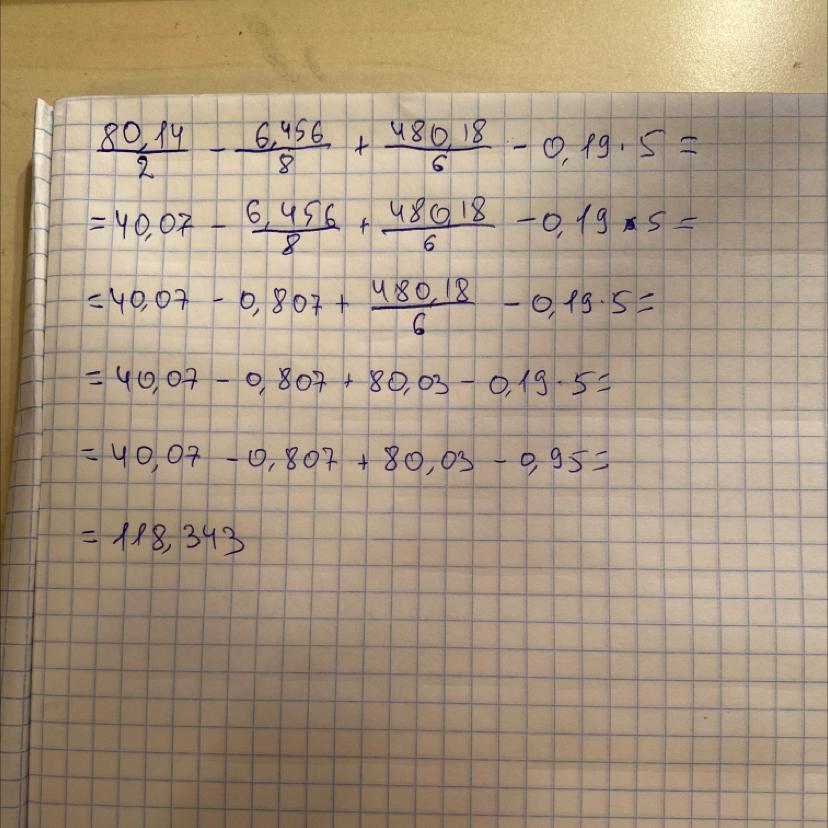 80,14/2 - 6,456/8 + 480,18/6 - 0,19 · 5 =
= 40,07 - 6,456/8 + 480,18/6 - 0,19 · 5 =
= 40,07 - 0,807 + 480,18/6 - 0,19 · 5 =
= 40,07 - 0,807 + 80,03 - 0,19 · 5 =
= 40,07 - 0,807 + 80,03 - 0,95 =
= 118,343